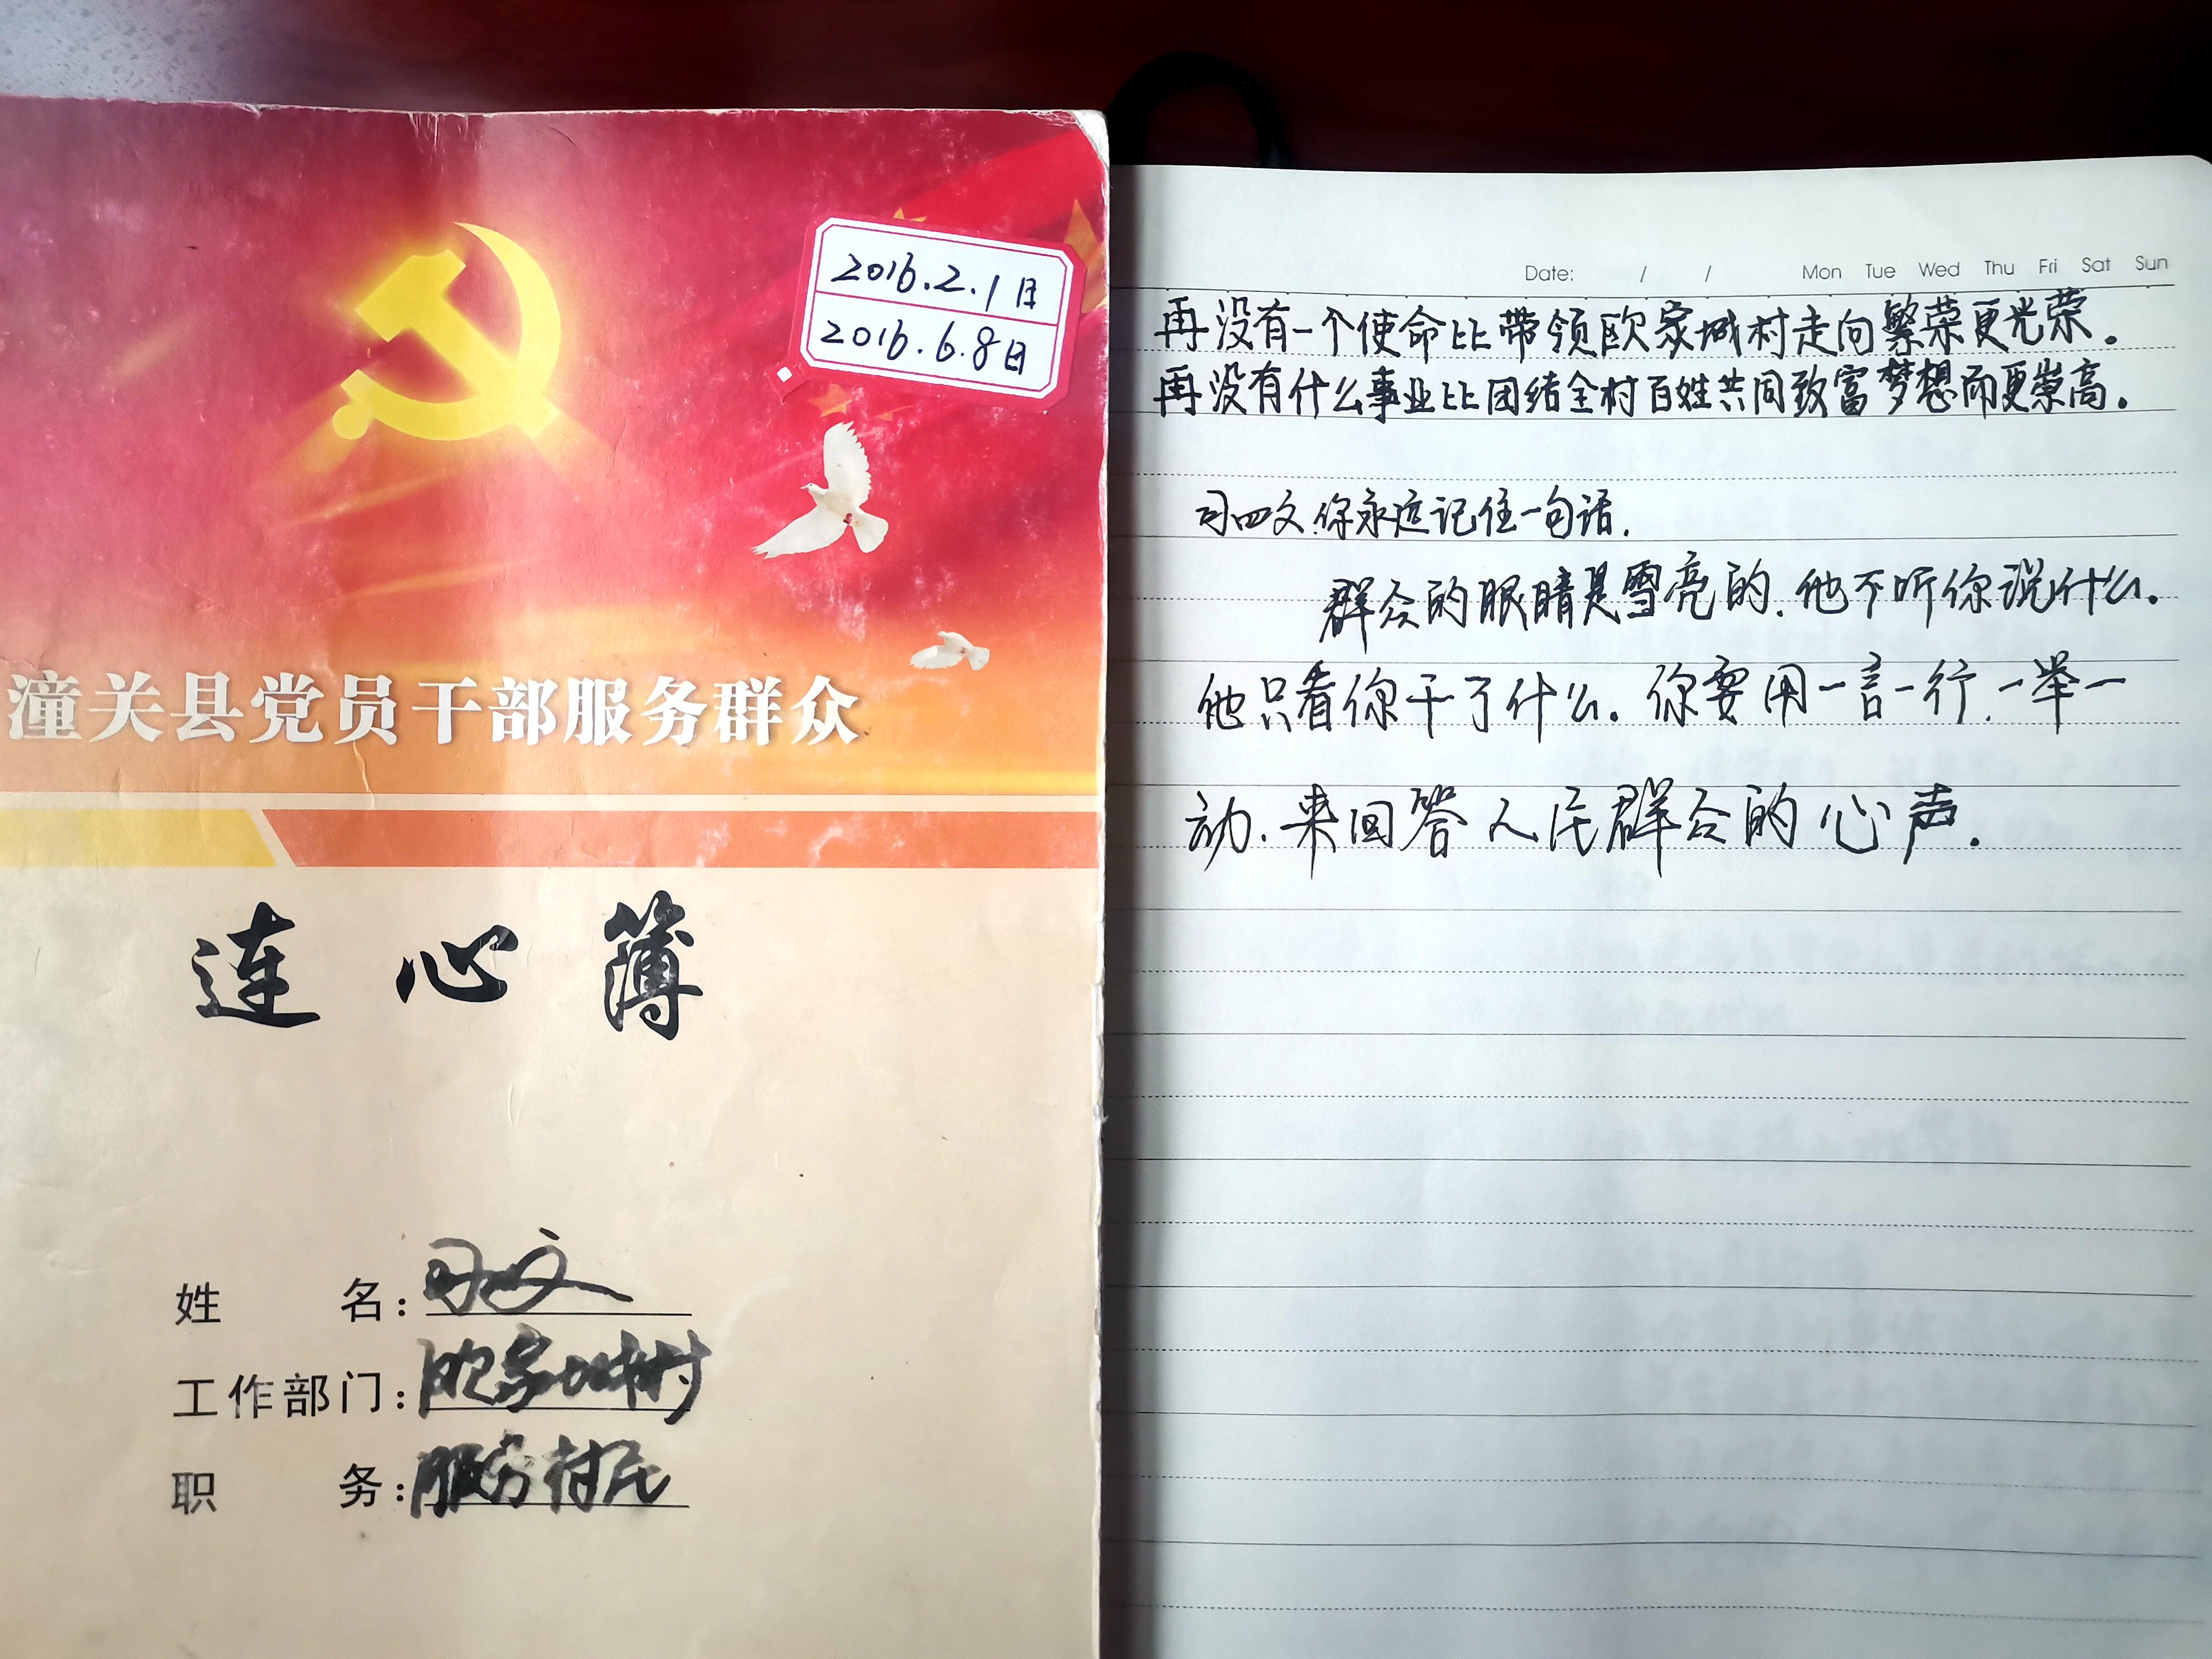 2016.2.1日
2016.6.8日
潼关县党员干部服务群众
连心薄
姓名：司四文
工作部门：欧家城村
职务：服务村民
Date: / / Mon Tue Wed Thu Fri Sat Sun
再没有一个使命比带领欧家城村走向繁荣更光荣。
再没有什么事业比团结全村百姓共同致富梦想而更崇高。
司四文，你永远记住一句话.
群众的眼睛是雪亮的.他不听你说什么.
他只看你干了什么.你要用一言一行.一举一
动.来回答人民群众的心声.